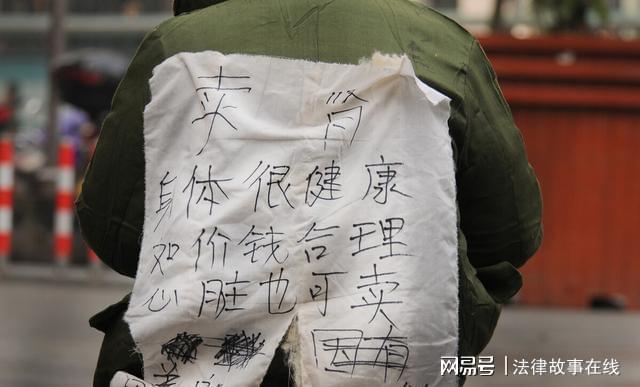 卖肾
身体很健康
如价钱合理
心脏也可卖
因有
网易号 | 法律故事在线